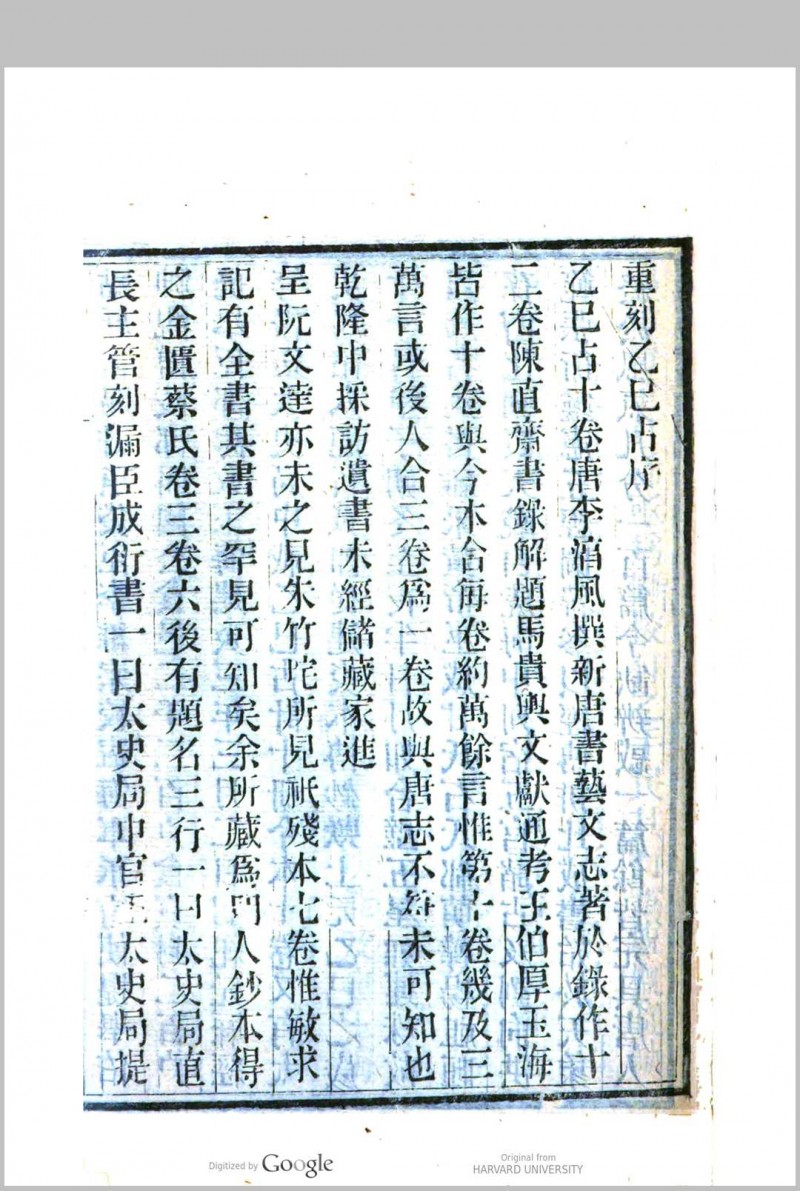 重刻乙巳占序
乙巳占十卷唐李淳風撰新唐書藝文志著於錄作十
二卷陳直齋書錄解題馬貴與文獻通考王伯厚玉海
皆作十卷與今本合每卷約萬餘言惟第十卷幾及三
萬言或後人合三卷爲一卷故與唐志不符未可知也
乾隆中採訪遺書未經儲藏家進
呈阮文達亦未之見朱竹垞所見祇殘本七卷惟敏求
記有全書其書之罕見可知矣余所藏爲門人鈔本得
之金匱蔡氏卷三卷六後有題名三行一曰太史局直
長主管刻漏臣成衍書一曰太史局中官正太史局提
Digitized by Google
Original from
HARVARD UNIVERSITY